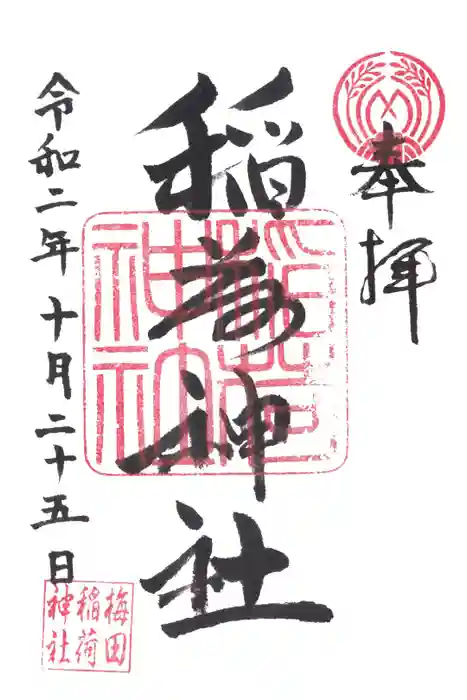 奉拝
稲荷神社
令和二年十月二十五日
稲荷神社
梅田
稲荷
神社